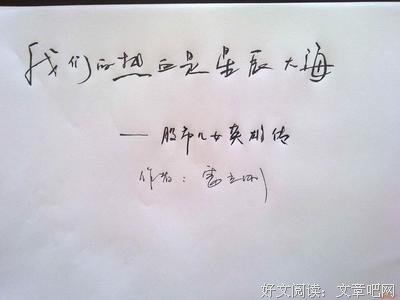 我们的热血是星辰大海
——股市儿女英雄传
作者：雷立刚
好文阅读：文章吧网